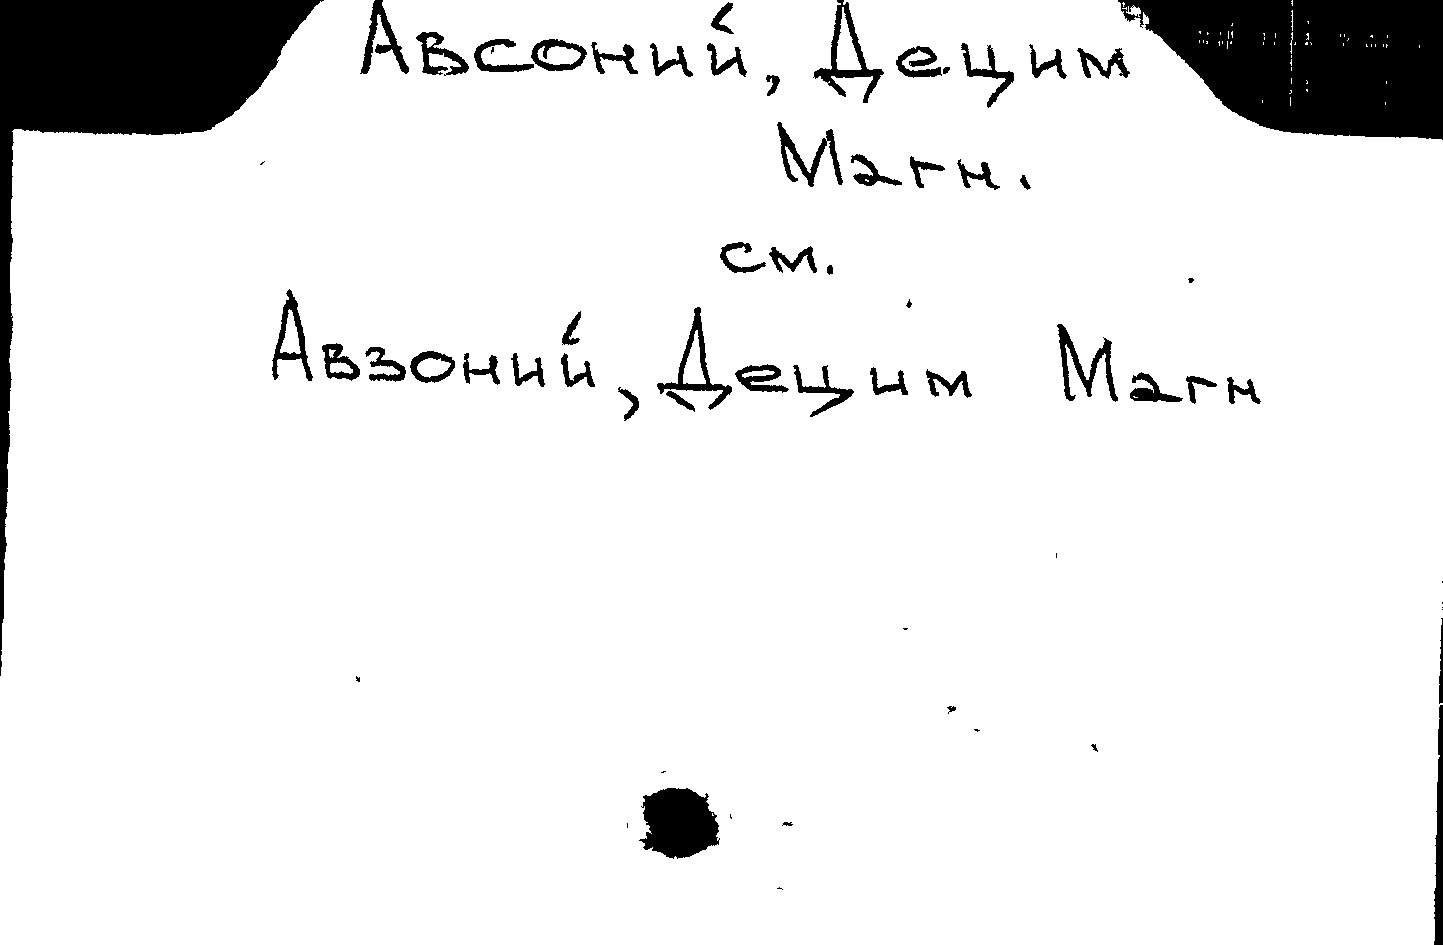 Авсоний, Децим
Магн.
см.
Авзоний, Децим Магн